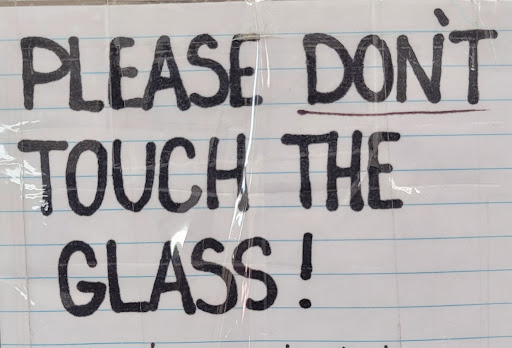 PLEASE DON'T
TOUCH THE
GLASS!